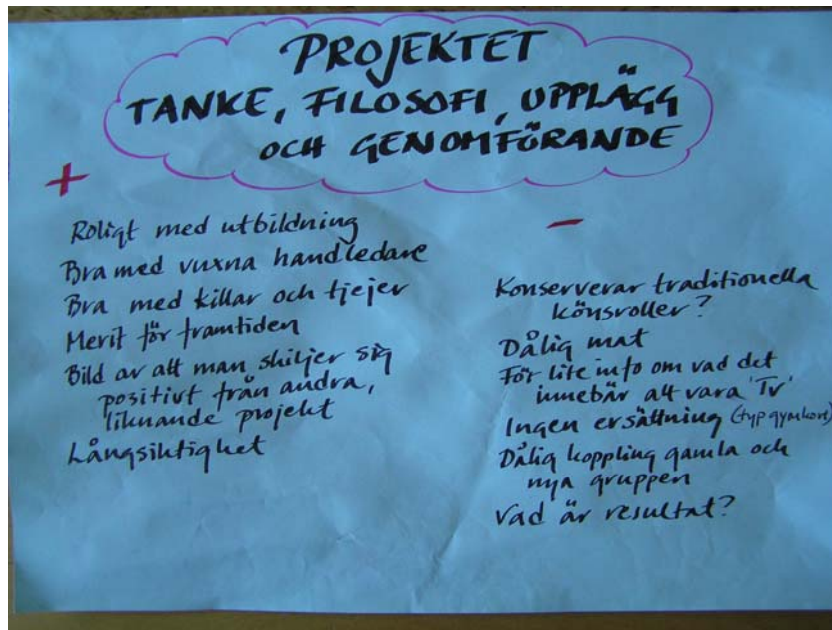 PROJEKTET
TANKE, FILOSOFI, UPPLÄGG
OCH GENOMFÖRANDE
+
Roligt med utbildning
Bra med vuxna handledare
Bra med killar och tjejer
Merit för framtiden
Bild av att man skiljer sig
positivt från andra,
liknande projekt
Långsiktighet
-
Konserverar traditionella
könsroller?
Dålig mat
För lite info om vad det
innebär att vara 'Tv'
Ingen ersättning (typ gymkort)
Dålig koppling gamla och
nya gruppen
Vad är resultat?